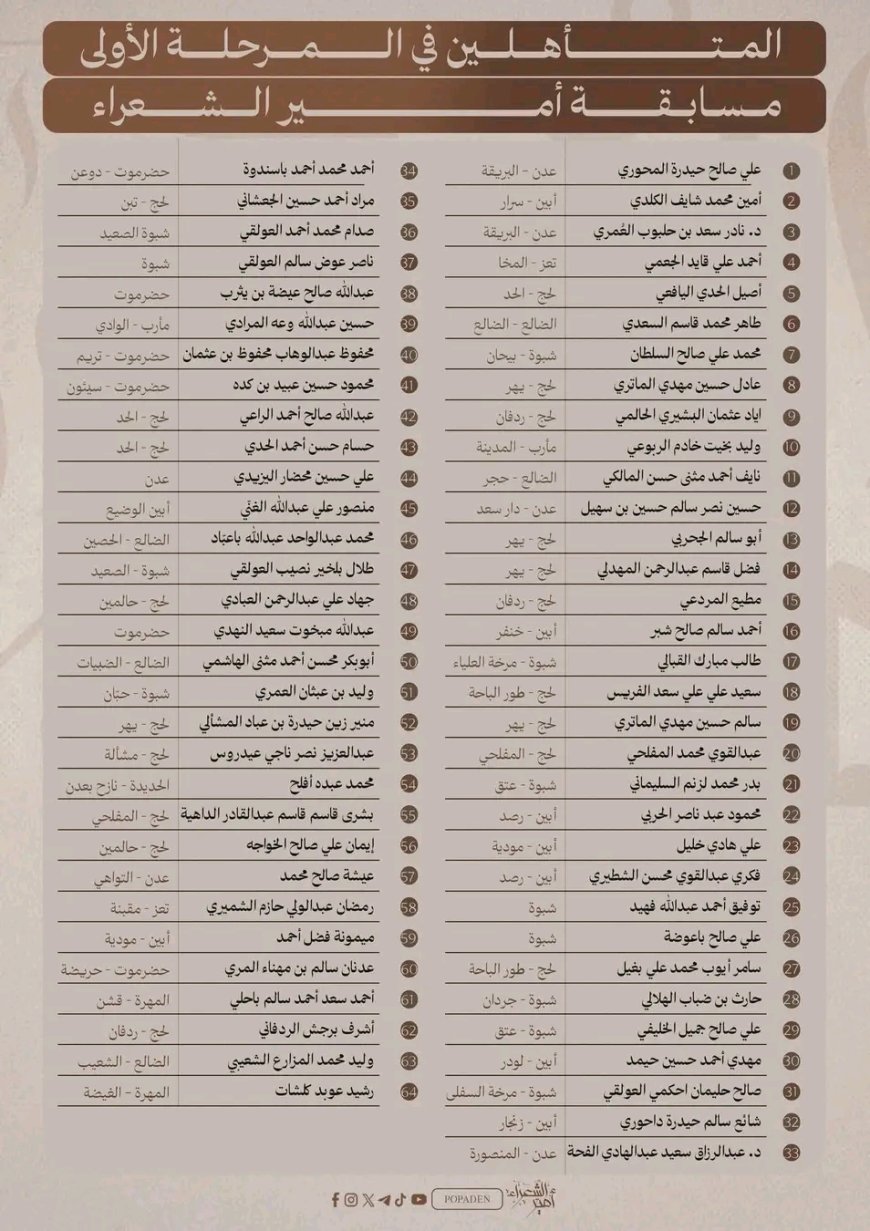 المتأهلين في المرحلة الأولى
مسابقة أمير الشعراء
1 علي صالح حيدرة المحوري عدن - البريقة
2 أمين محمد شايف الكلدي أبين - سرار
3 د. نادر سعد بن حلبوب العُمري عدن - البريقة
4 أحمد علي قايد الجعمي تعز - المخا
5 أصيل الحدي اليافعي لحج - الحد
6 طاهر محمد قاسم السعدي الضالع - الضالع
7 محمد علي صالح السلطان شبوة - بيحان
8 عادل حسين مهدي الماتري لحج - يهر
9 اياد عثمان البشيري الحالمي لحج - ردفان
10 وليد بخيت خادم الربوعي مأرب - المدينة
11 نايف أحمد مثنى حسن المالكي الضالع - حجر
12 حسين نصر سالم حسين بن سهيل عدن - دار سعد
13 أبو سالم الجحربي لحج - يهر
14 فضل قاسم عبدالرحمن المهدلي لحج - يهر
15 مطيع المردعي لحج - ردفان
16 أحمد سالم صالح شبر أبين - خنفر
17 طالب مبارك القبالي شبوة - مرخة العلياء
18 سعيد علي علي سعد الفريس لحج - طور الباحة
19 سالم حسين مهدي الماتري لحج - يهر
20 عبدالقوي محمد المفلحي لحج - المفلحي
21 بدر محمد لزنم السليماني شبوة - عتق
22 محمود عبد ناصر الحربي أبين - رصد
23 علي هادي خليل أبين - مودية
24 فكري عبدالقوي محسن الشطيري أبين - رصد
25 توفيق أحمد عبدالله فهيد شبوة
26 علي صالح باعوضة شبوة
27 سامر أيوب محمد علي بغيل لحج - طور الباحة
28 حارث بن ضباب الهلالي شبوة - جردان
29 علي صالح جميل الخليفي شبوة - عتق
30 مهدي أحمد حسين حيمد أبين - لودر
31 صالح حليمان احكمي العولقي شبوة - مرخة السفلى
32 شائع سالم حيدرة داحوري أبين - زنجار
33 د. عبدالرزاق سعيد عبدالهادي الفحة عدن - المنصورة
34 أحمد محمد أحمد باسندوة حضرموت - دوعن
35 مراد أحمد حسين الجعشاني لحج - تبن
36 صدام محمد أحمد العولقي شبوة الصعيد
37 ناصر عوض سالم العولقي شبوة
38 عبدالله صالح عيضة بن يثرب حضرموت
39 حسين عبدالله وعه المرادي مأرب - الوادي
40 محفوظ عبدالوهاب محفوظ بن عثمان حضرموت - تريم
41 محمود حسين عبيد بن كده حضرموت - سيئون
42 عبدالله صالح أحمد الراعي لحج - الحد
43 حسام حسن أحمد الحدي لحج - الحد
44 علي حسين محضار اليزيدي عدن
45 منصور علي عبدالله الغنّي أبين الوضيع
46 محمد عبدالواحد عبدالله باعبّاد الضالع - الحصين
47 طلال بلخير نصيب العولقي شبوة - الصعيد
48 جهاد علي عبدالرحمن العبادي لحج - حالمين
49 عبدالله مبخوت سعيد النهدي حضرموت
50 أبوبكر محسن أحمد مثنى الهاشمي الضالع - الضبيات
51 وليد بن عبثان العمري شبوة - حبّان
52 منير زين حيدرة بن عباد المشألي لحج - يهر
53 عبدالعزيز نصر ناجي عيدروس لحج - مشألة
54 محمد عبده أفلح الحديدة - نازح بعدن
55 بشرى قاسم قاسم عبدالقادر الداهية لحج - المفلحي
56 إيمان علي صالح الخواجه لحج - حالمين
57 عيشة صالح محمد عدن - التواهي
58 رمضان عبدالولي حازم الشميري تعز - مقبنة
59 ميمونة فضل أحمد أبين - مودية
60 عدنان سالم بن مهناء المري حضرموت - حريضة
61 أحمد سعد أحمد سالم باحلي المهرة - قشن
62 أشرف برجش الردفاني لحج - ردفان
63 وليد محمد المزارع الشعيبي الضالع - الشعيب
64 رشيد عوبد كلشات المهرة - الغيضة
POPADEN أمير الشعراء